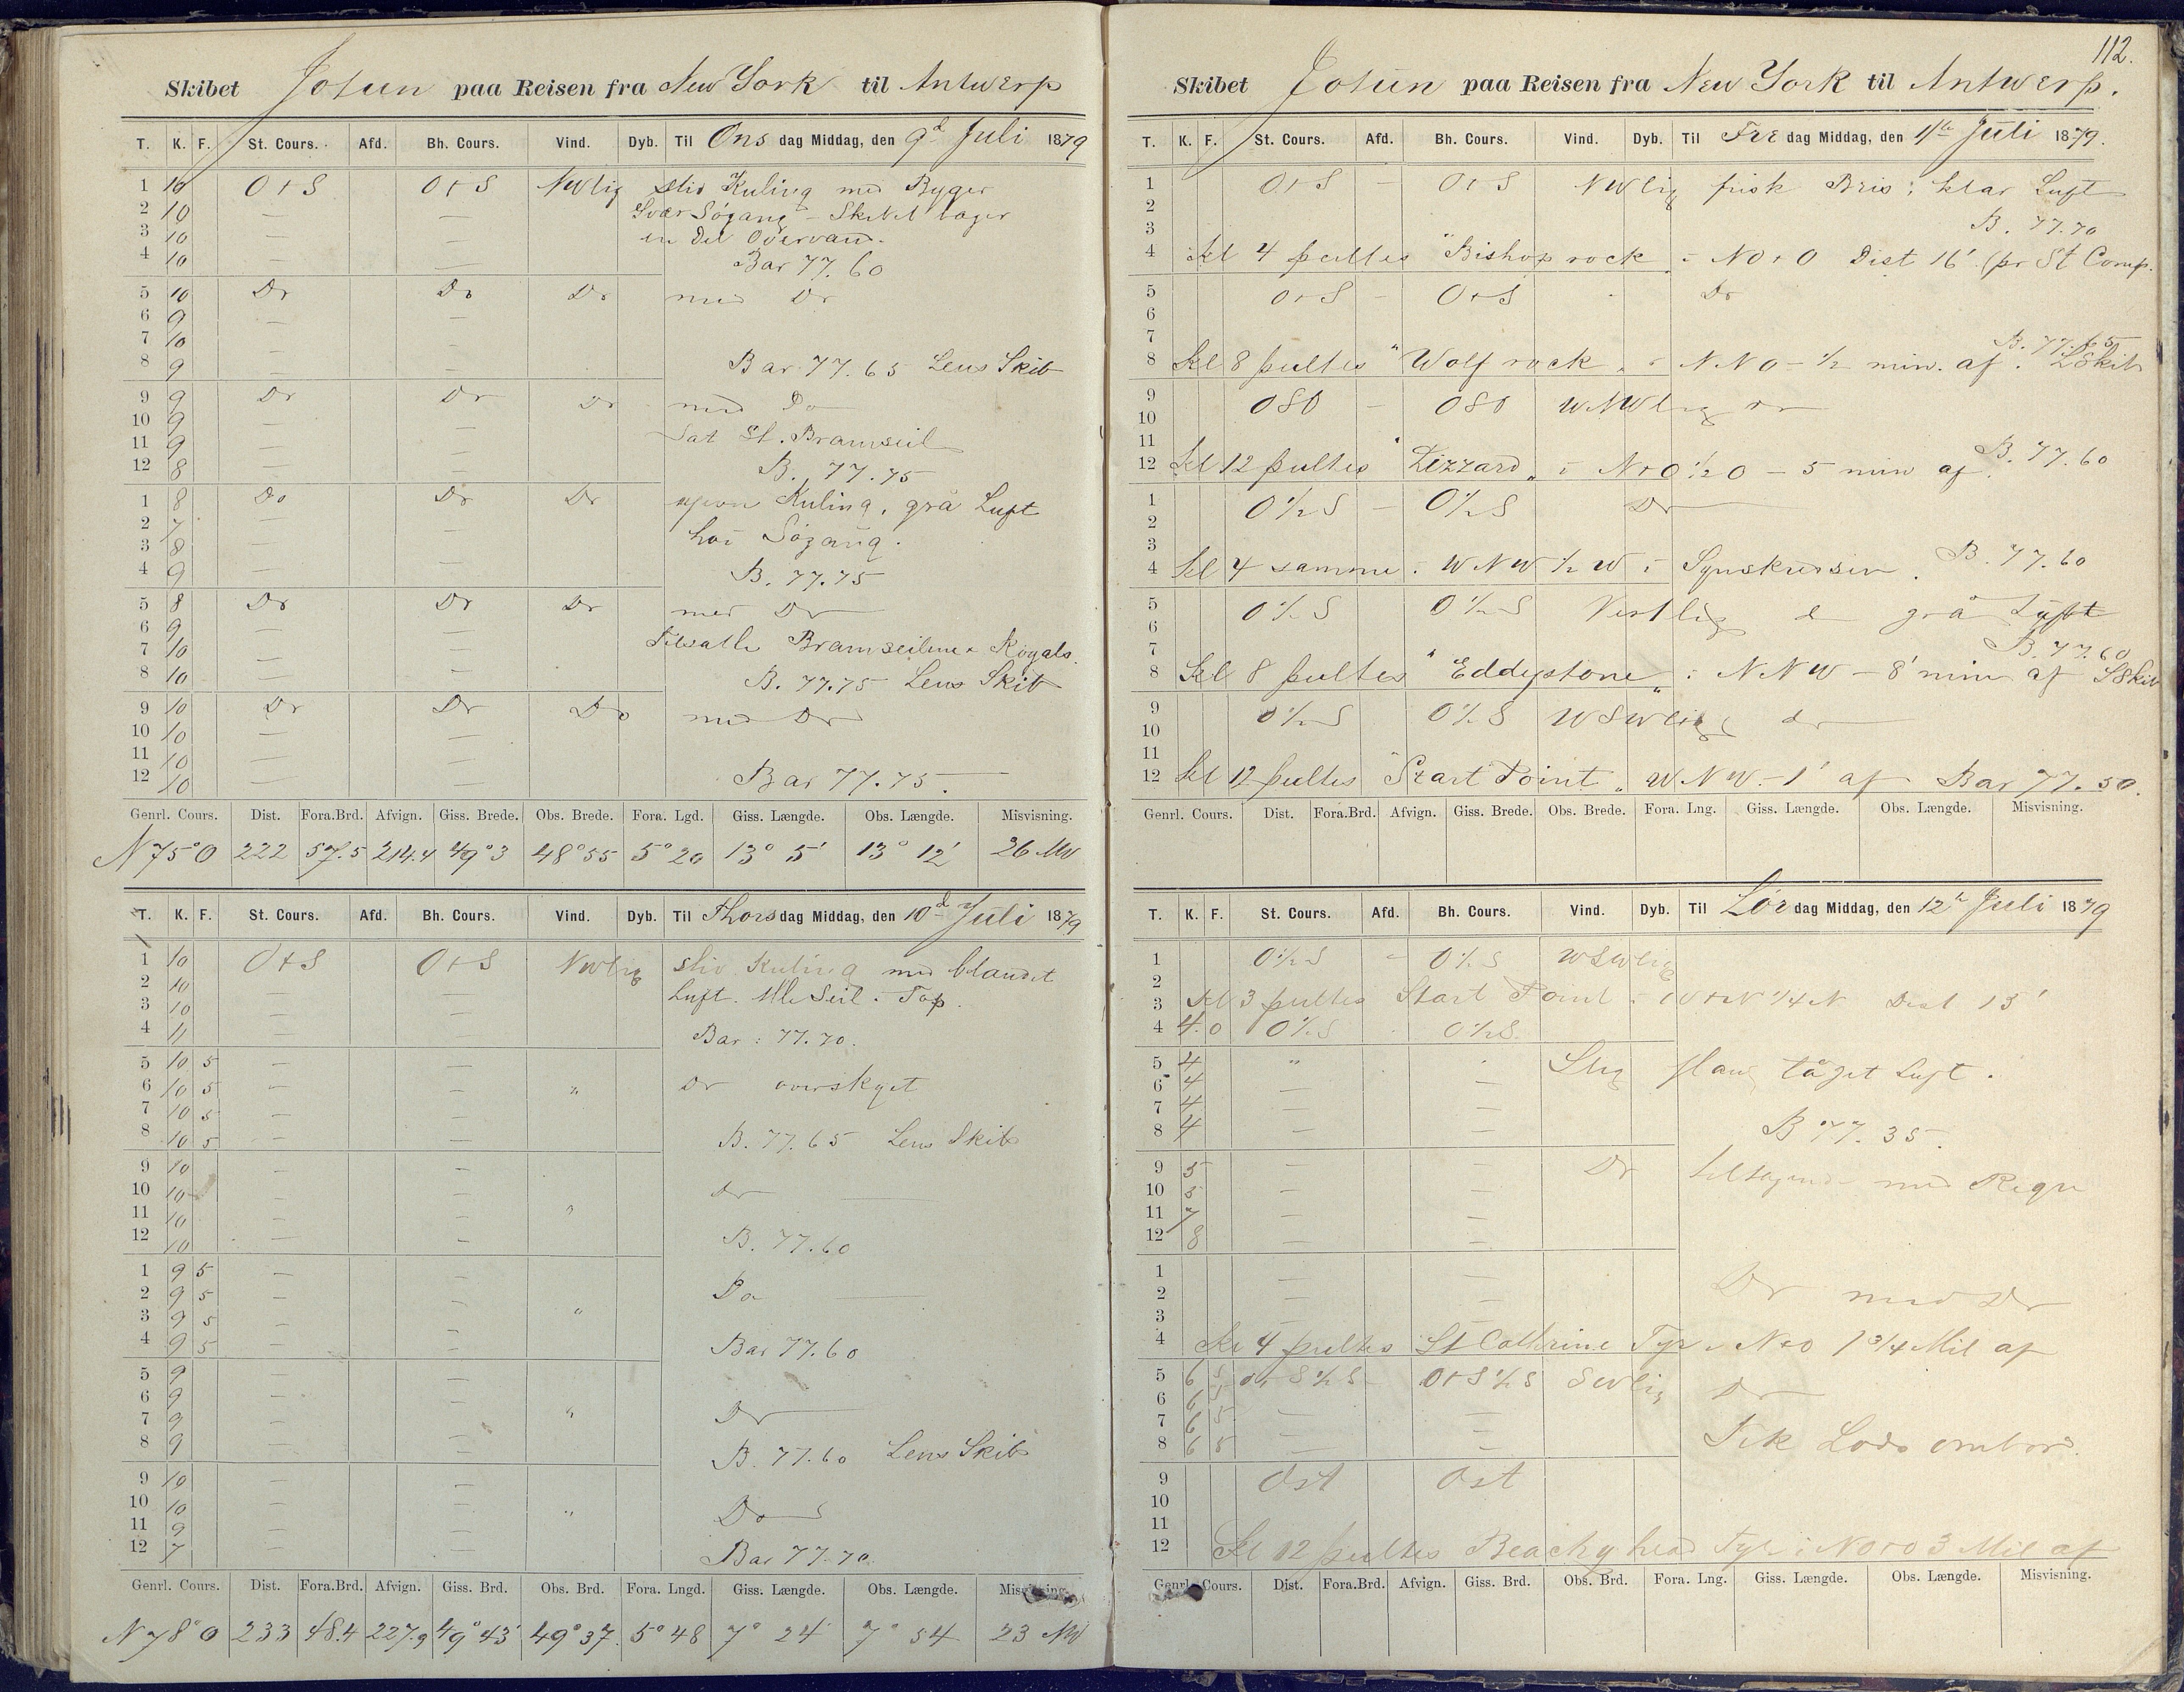 Skibet Jotun paa Reisen fra New York til Antwerp
T. K. F. St. Cours. Afd. Bh. Cours. Vind. Dyb. Til Onsdag Middag, den 9d Juli 1879
1 10 O t S O t S NWlig stiv Kuling med Byger
2 10 — — Svær Søgang - Skibet tager
3 10 — — en Del Overvand.
4 10 — — Bar 77.60
5 10 Do Do Do med Do
6 9 — —
7 10 — —
8 9 — — Bar. 77.65 Lens Skib
9 9 Do Do Do med Do
10 9 — — Sat St. Bramseil
11 9 — —
12 8 — — B. 77.75
1 8 Do Do Do Kuling, grå Luft
2 7 — — høi Søgang.
3 8 — —
4 9 — — B. 77.75
5 8 Do Do Do med Do
6 9 — — Tilsatte Bramseilene & Røyals.
7 10 — —
8 10 — — B. 77.75 Lens Skib
9 10 Do Do Do med Do
10 10 — —
11 10 — —
12 10 — — Bar 77.75.
Genrl. Cours. Dist. Fora.Brd. Afvign. Giss. Brede. Obs. Brede. Fora. Lgd. Giss. Længde. Obs. Længde. Misvisning.
N 75° O 222 57.5 214.4 49° 3 48° 55 5° 20 13° 5' 13° 12' 26 NW
T. K. F. St. Cours. Afd. Bh. Cours. Vind. Dyb. Til Thorsdag Middag, den 10d Juli 1879
1 10 O t S O t S NWlig stiv Kuling med blandet
2 10 — — Luft. Alle Seil i Top.
3 10 — —
4 11 — — Bar: 77.70.
5 10 5 — —
6 10 5 — — " Do overskyet
7 10 5 — —
8 10 5 — — B. 77.65 Lens Skib
9 10 — —
10 10 — — Do —
11 10 — — "
12 10 — — B. 77.60
1 9 5 — —
2 9 5 — — Do —
3 9 5 — — "
4 9 5 — — Bar 77.60
5 9 — —
6 9 — — " Do
7 9 — —
8 9 — — B. 77.60 Lens Skib
9 10 — —
10 10 — — " Do
11 9 — —
12 7 — — Bar 77.70
Genrl. Cours. Dist. Fora.Brd. Afvign. Giss. Brd. Obs. Brd. Fora. Lngd. Giss. Længde. Obs. Længde. Misvisning.
N 78° O 233 48.4 227.9 49° 43' 49° 37. 5° 48 7° 24' 7° 54 23 NW
112.
Skibet Jotun paa Reisen fra New York til Antwerp.
T. K. F. St. Cours. Afd. Bh. Cours. Vind. Dyb. Til Fredag Middag, den 11te Juli 1879.
1 O t S - O t S NWlig frisk Bris; klar Luft
2
3 B. 77.70
4 Kl 4 peiltes "Bishop rock" i NO t O Dist 16' (pr St Comp.
5 O t S - O t S Do
6
7 B. 77.65
8 Kl 8 peiltes "Wolf rock" i NNO - ½ min. af. LSkib
9 OSO - OSO WNWlig Do
10
11 B. 77.60
12 Kl 12 peiltes "Lizzard" i N t O ½ O - 5 min af.
1 O ½ S - O ½ S Do
2
3
4 Kl 4 samme i WNW ½ W i Synskredsen. B. 77.60
5 O ½ S O ½ S Vestlig d grå Luft
6
7 B. 77.60
8 Kl 8 peiltes "Eddystone" i NNW - 8' min af LSkib
9 O ½ S O ½ S WSWlig do
10
11
12 Kl 12 peiltes "Start Point" WNW - 1' af Bar 77.50.
Genrl. Cours. Dist. Fora.Brd. Afvign. Giss. Brede. Obs. Brede. Fora. Lng. Giss. Længde. Obs. Længde. Misvisning.
T. K. F. St. Cours. Afd. Bh. Cours. Vind. Dyb. Til Lørdag Middag, den 12te Juli 1879
1 O ½ S - O ½ S WSWlig
2
3 Kl 3 peiltes Start Point i W t N ¼ N Dist 15'
4 4.0 O ½ S O ½ S.
5 4 " " Slig flau, tåget Luft.
6 4 — —
7 4 — —
8 4 — — B 77.35.
9 5 — — Do tiltagende med Regn
10 5 — —
11 7 — —
12 8 — —
1 — —
2 — — Do med Do
3 — —
4 Kl 4 peiltes St Cathrine Fyr i N t O 1 3/4 Mil af
5 6 5 O t S ½ S O t S ½ S SWlig Do
6 6 5
7 6 5 — —
8 6 5 — — Fik Lods ombord.
9 Ost Ost
10
11
12 Kl 12 peiltes Beachy head Fyr i NO t O 3 Mil af
Genrl. Cours. Dist. Fora.Brd. Afvign. Giss. Brd. Obs. Brd. Fora. Lng. Giss. Længde. Obs. Længde. Misvisning.